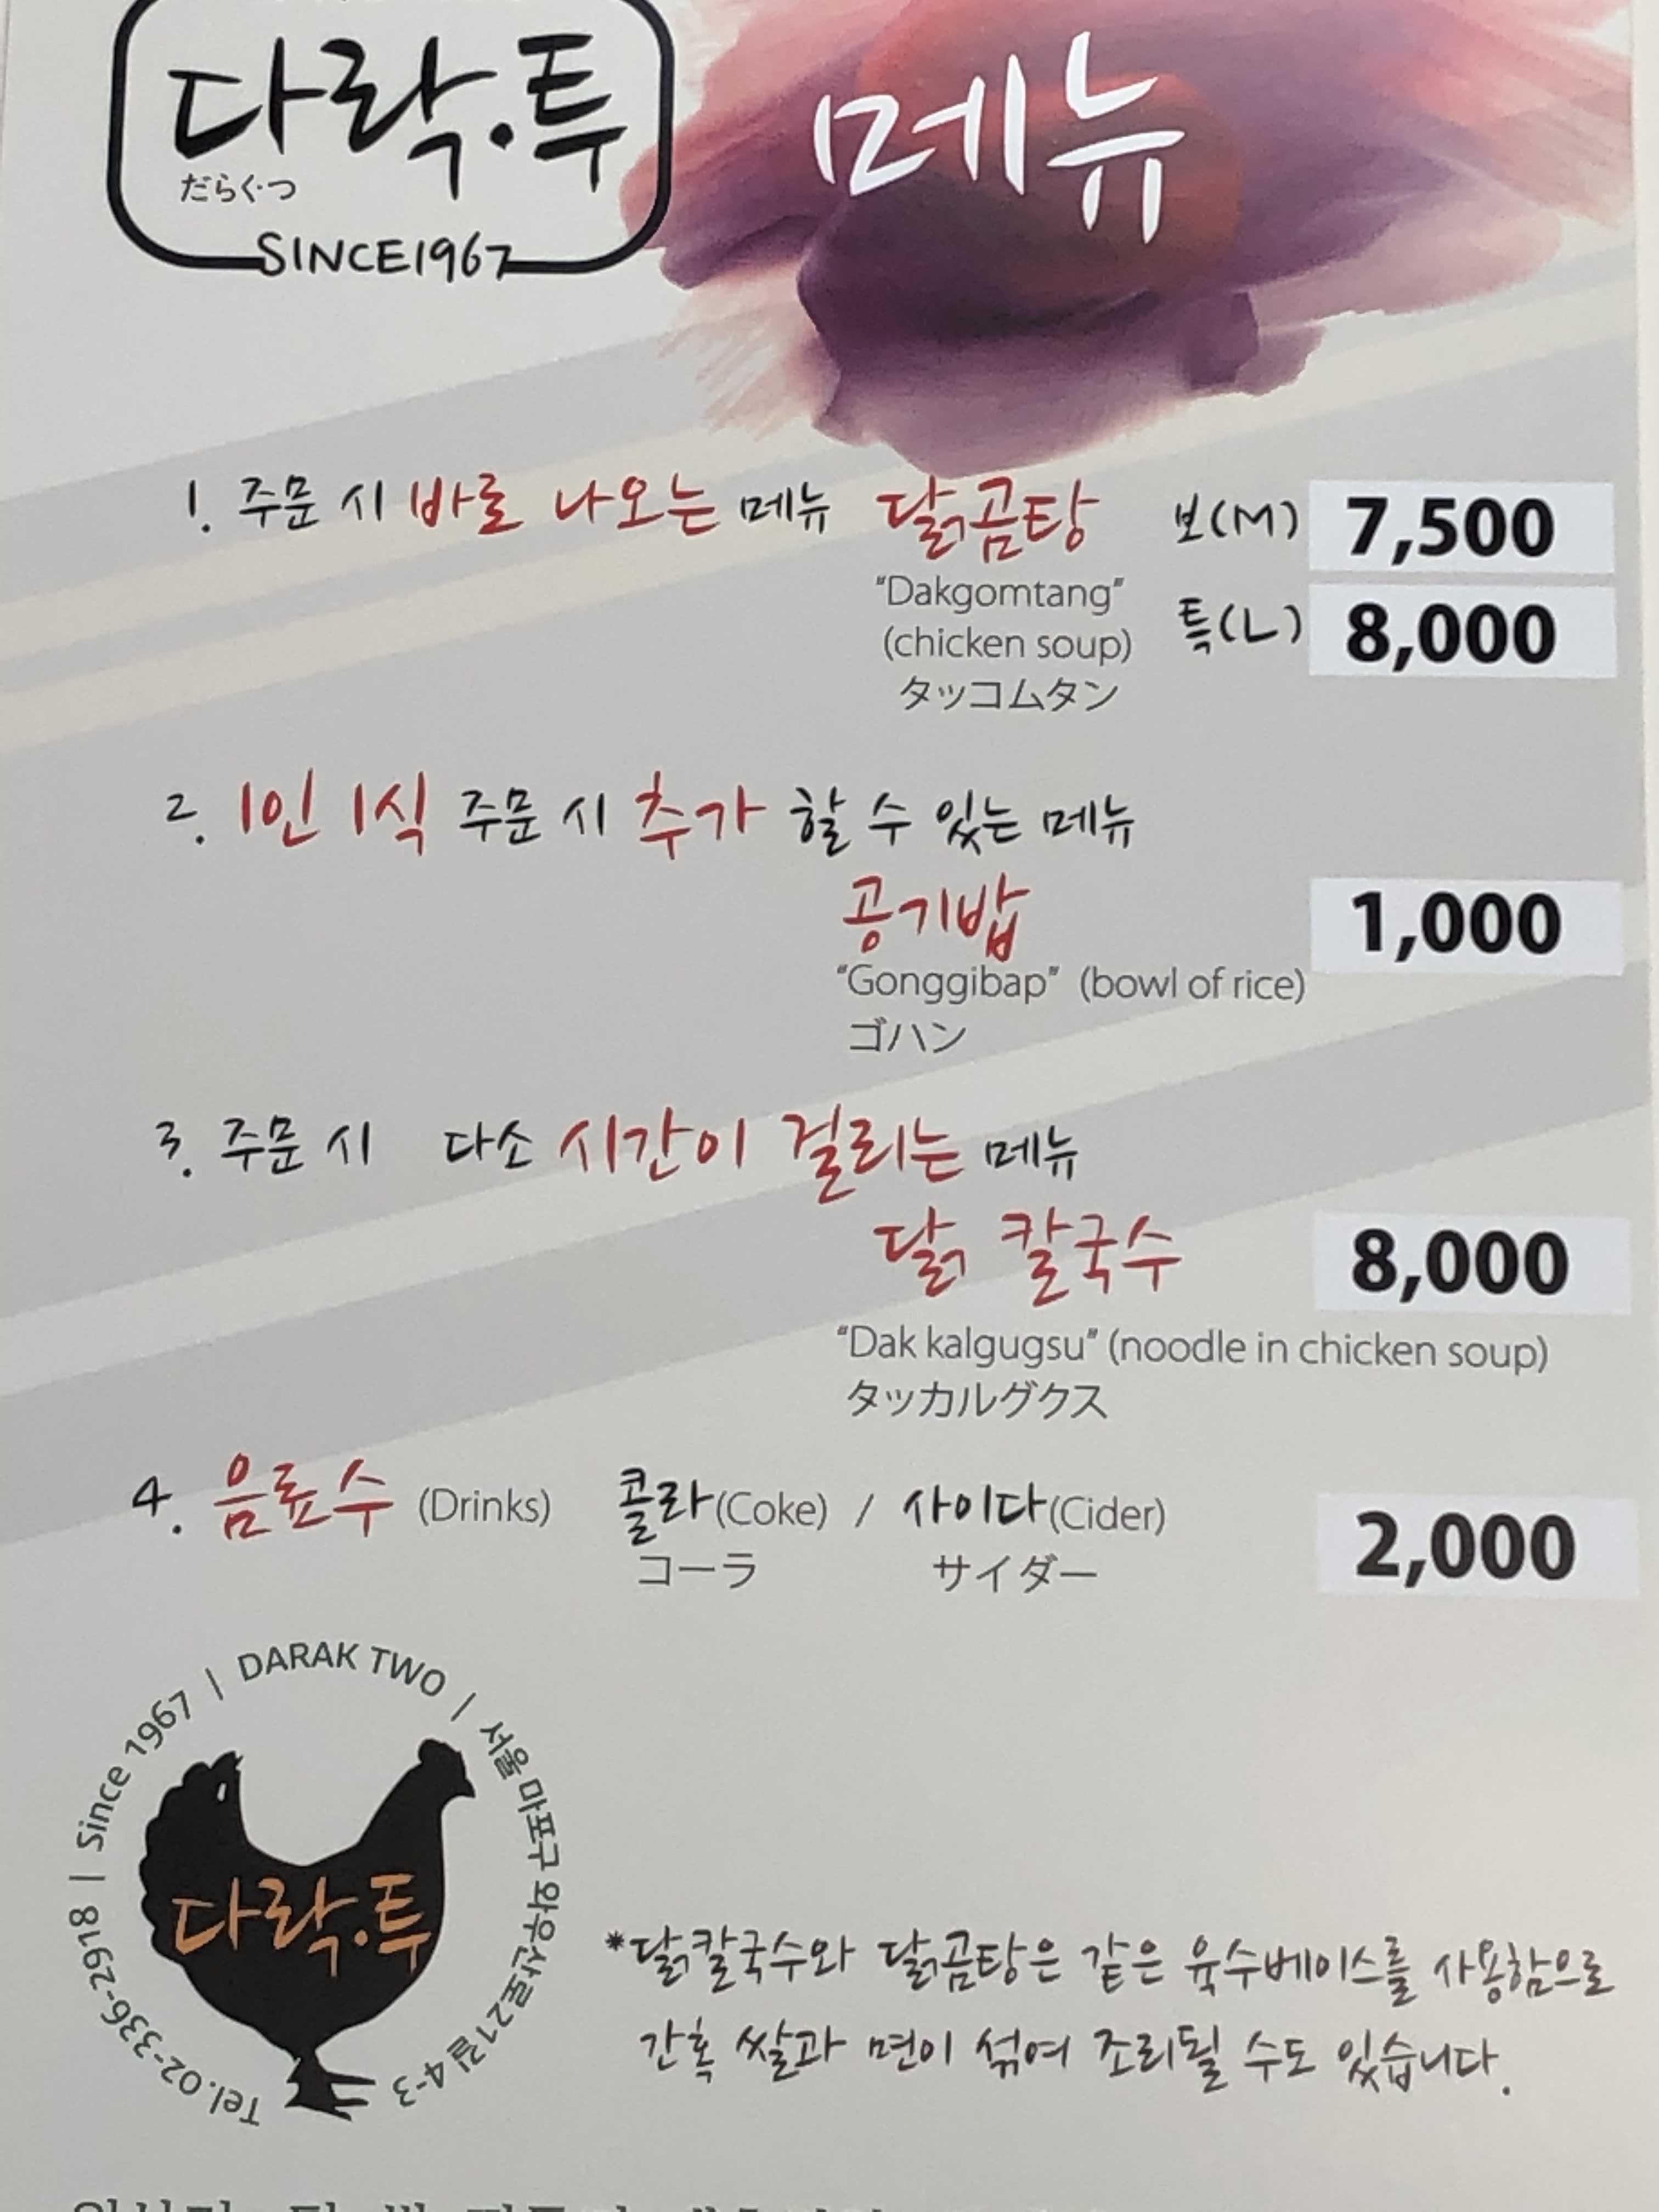 다락.투
だらく·つ
SINCE1967
메뉴
1. 주문 시 바로 나오는 메뉴 닭곰탕 보(M) 7,500
"Dakgomtang"
(chicken soup) 특(L) 8,000
タッコムタン
2. 1인 1식 주문 시 추가 할 수 있는 메뉴
공기밥 1,000
"Gonggibap" (bowl of rice)
ゴハン
3. 주문 시 다소 시간이 걸리는 메뉴
닭 칼국수 8,000
"Dak kalgugsu" (noodle in chicken soup)
タッカルグクス
4. 음료수 (Drinks) 콜라(Coke) / 사이다(Cider) 2,000
コーラ サイダー
Tel. 02-336-2918 | Since 1967 | DARAK TWO | 서울 마포구 와우산로21길 4-3
다락.투
*닭칼국수와 닭곰탕은 같은 육수베이스를 사용함으로
간혹 쌀과 면이 섞여 조리될 수도 있습니다.